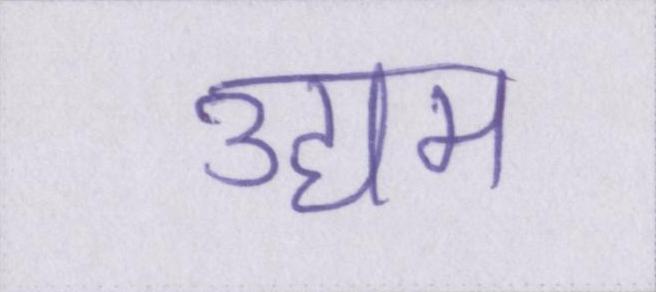 उद्यम